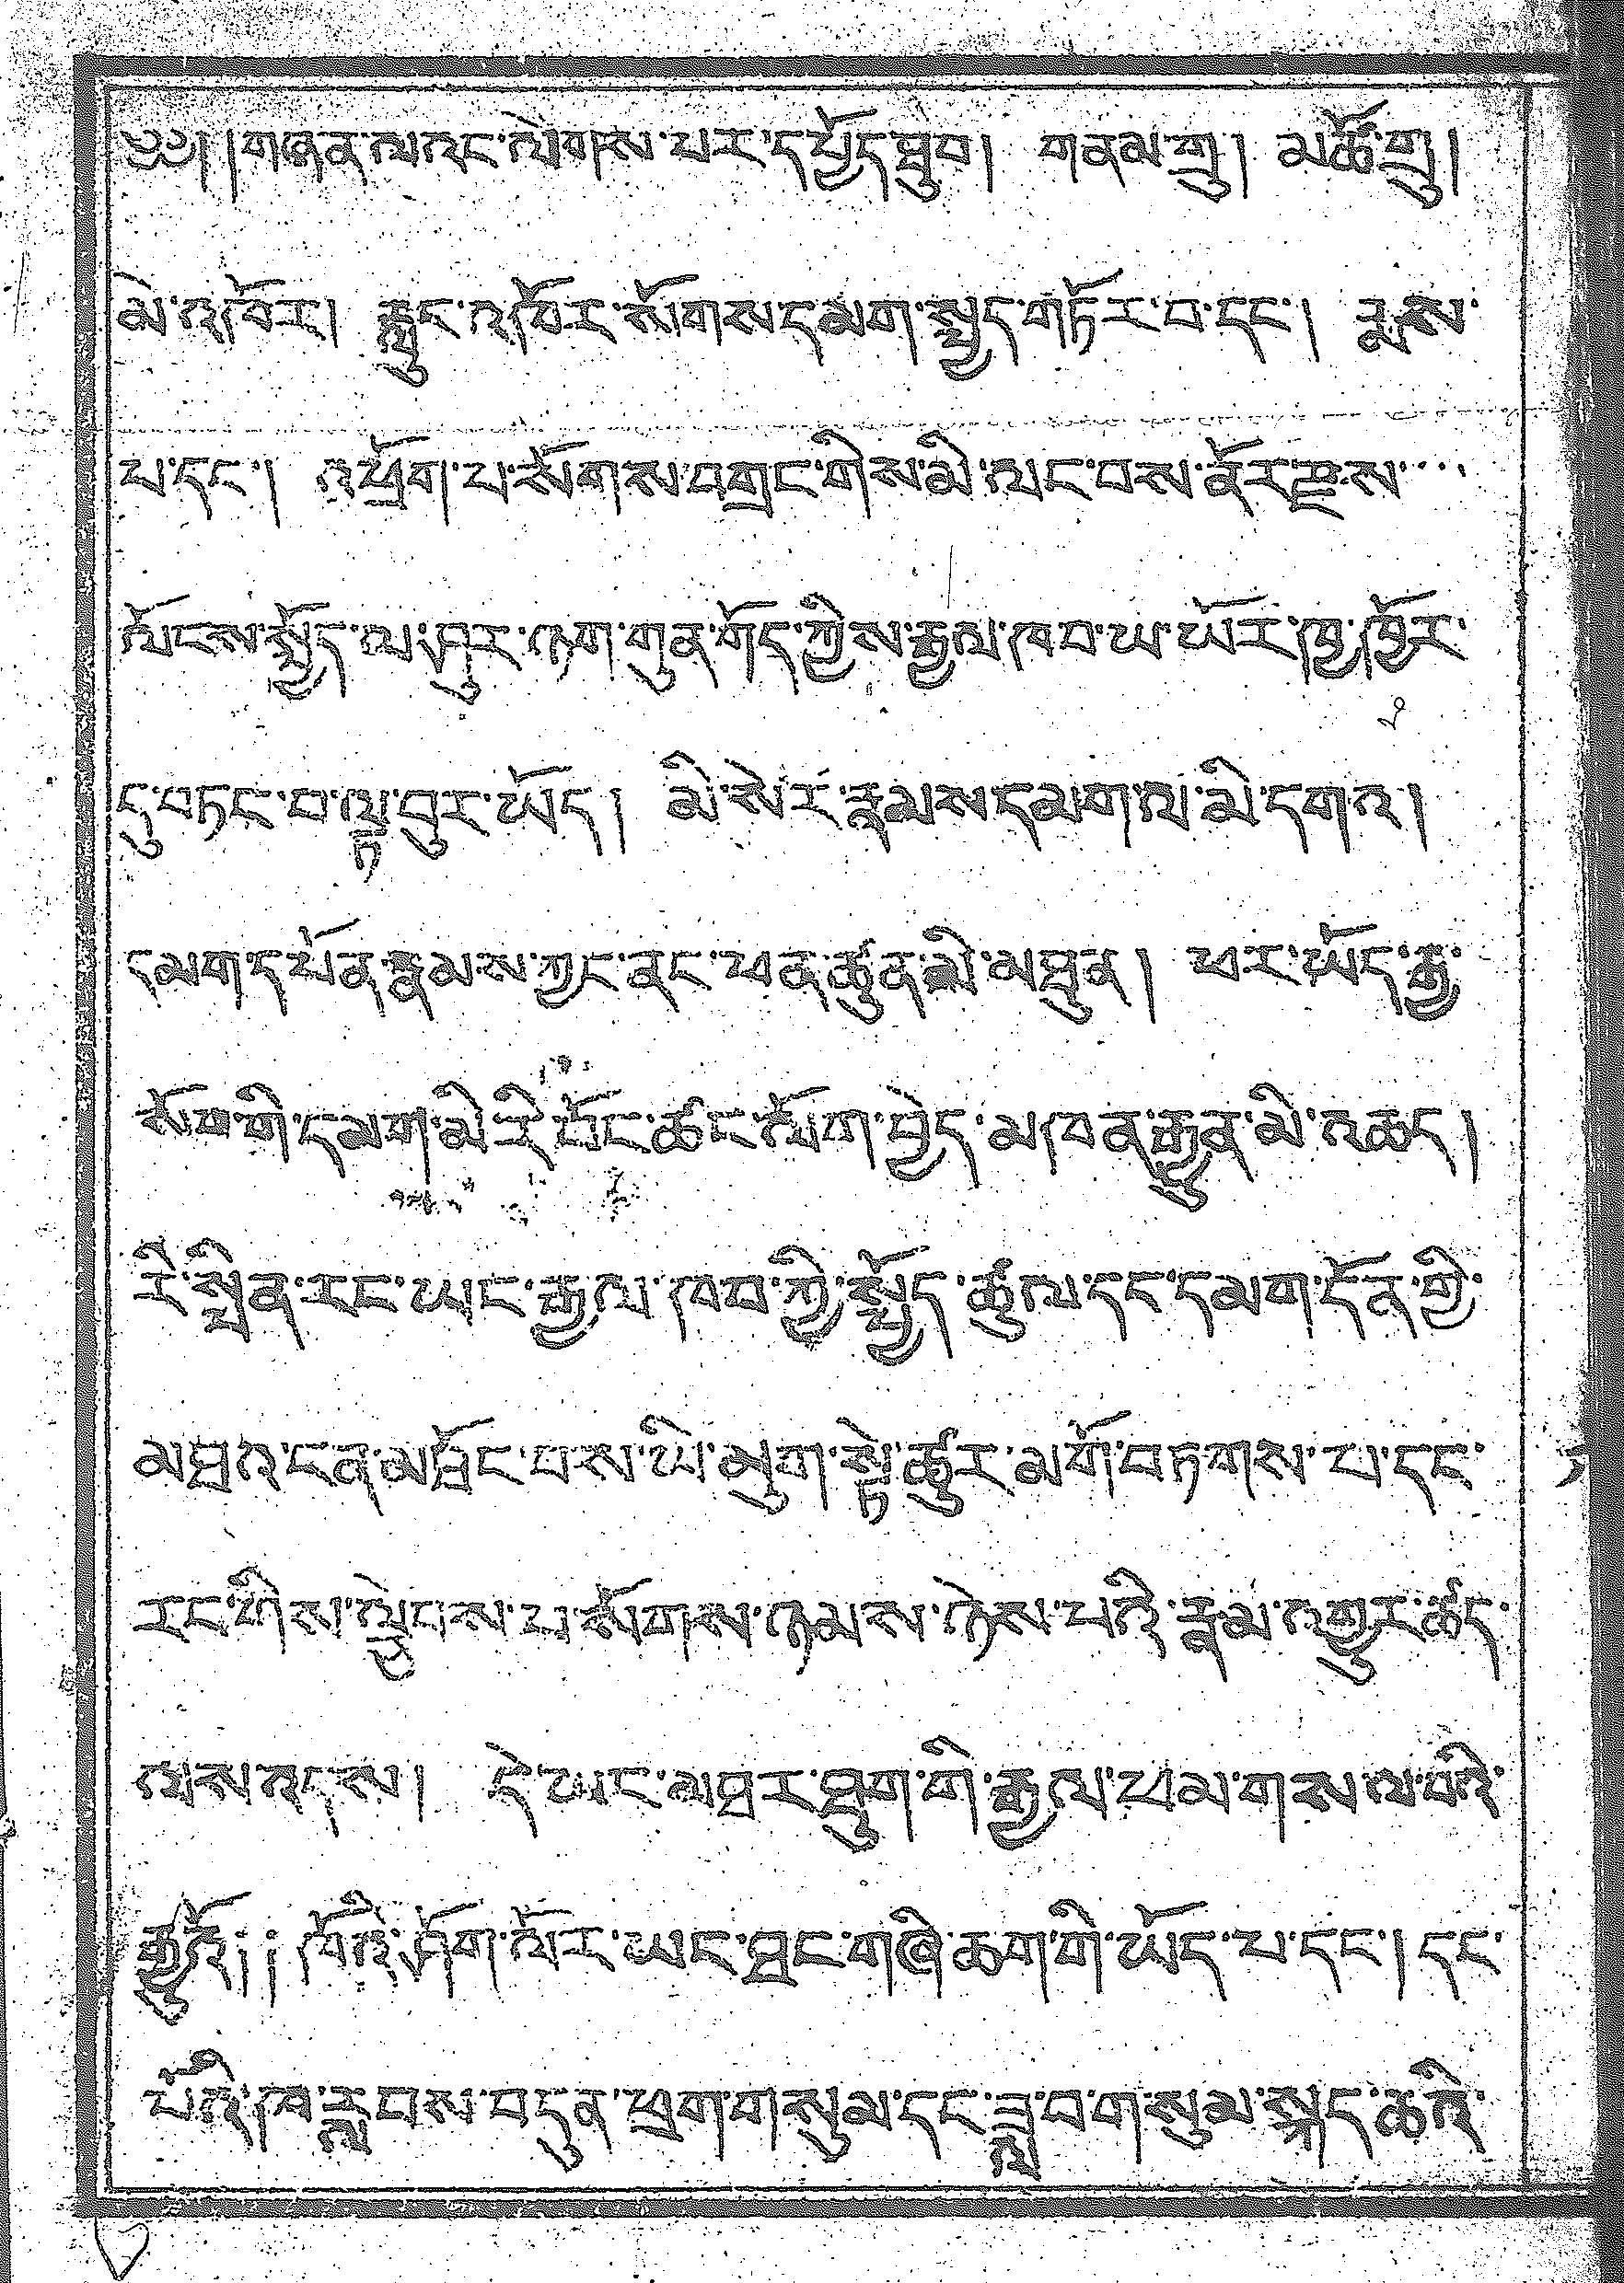 ༄༅། །གཞན་ལའང་ལེགས་པར་དཔྱོད་ཐུབ། གནམ་གྲུ། མཚོ་གྲུ།
མེ་འཁོར། རླུང་འཁོར་སོགས་དམག་སྤྱད་གཏོར་བ་དང་། རླམ་
པ་དང་། འཕྲོག་པ་སོགས་བགྲང་གིས་མི་ལང་བས་ནོར་རྫས་····
ལོངས་སྤྱོད་ལ་ཁུར་ཉག་གུན་གོད་ཀྱིས་རྒྱལ་ཁབ་ཡ་ཡོར་ཁྱ་ཁྱོར་
དུ་བཏང་བ་ལྟ་བུར་ཡོད། མི་སེར་རྣམས་དམག་ལ་མི་དགའ།
དམག་དཔོན་རྣམས་ཀྱང་ནང་ཕན་ཚུན་མི་མཐུན། ཕར་ཡོད་རྒྱ་
སོག་གི་དམག་མི་རི་བོང་ཚང་ལོག་བྱེད་མཁན་རྒྱུན་མི་འཆད།
རི་སྤིན་རང་ཡང་རྒྱལ་ཁབ་ཀྱི་སྤྱོད་ཚུལ་དང་དམག་དོན་གྱི་
མཐའ་དན་མཐོང་བས་ཡི་མུག་སྟེ་ཚུར་མགོ་བཏགས་པ་དང་
རང་གིས་ལྕེབས་པ་སོགས་ཉམས་ཉེས་པའི་རྣམ་འགྱུར་ཚད་
ལས་འདས། དེ་ཡང་མཐར་ཐུག་གི་རྒྱལ་ཕམ་གསལ་བའི་
རྒྱུ་ནི། ། ཁོའི་ཏོག་པོར་ཡང་ཐང་གཞི་ཆག་གི་ཡོད་པ་དང་། དང་
པོའི་ཁ་རླབས་བདུན་ཕྲག་གསུམ་དང་ཟླ་བ་གསུམ་སྐད་ཆའི་